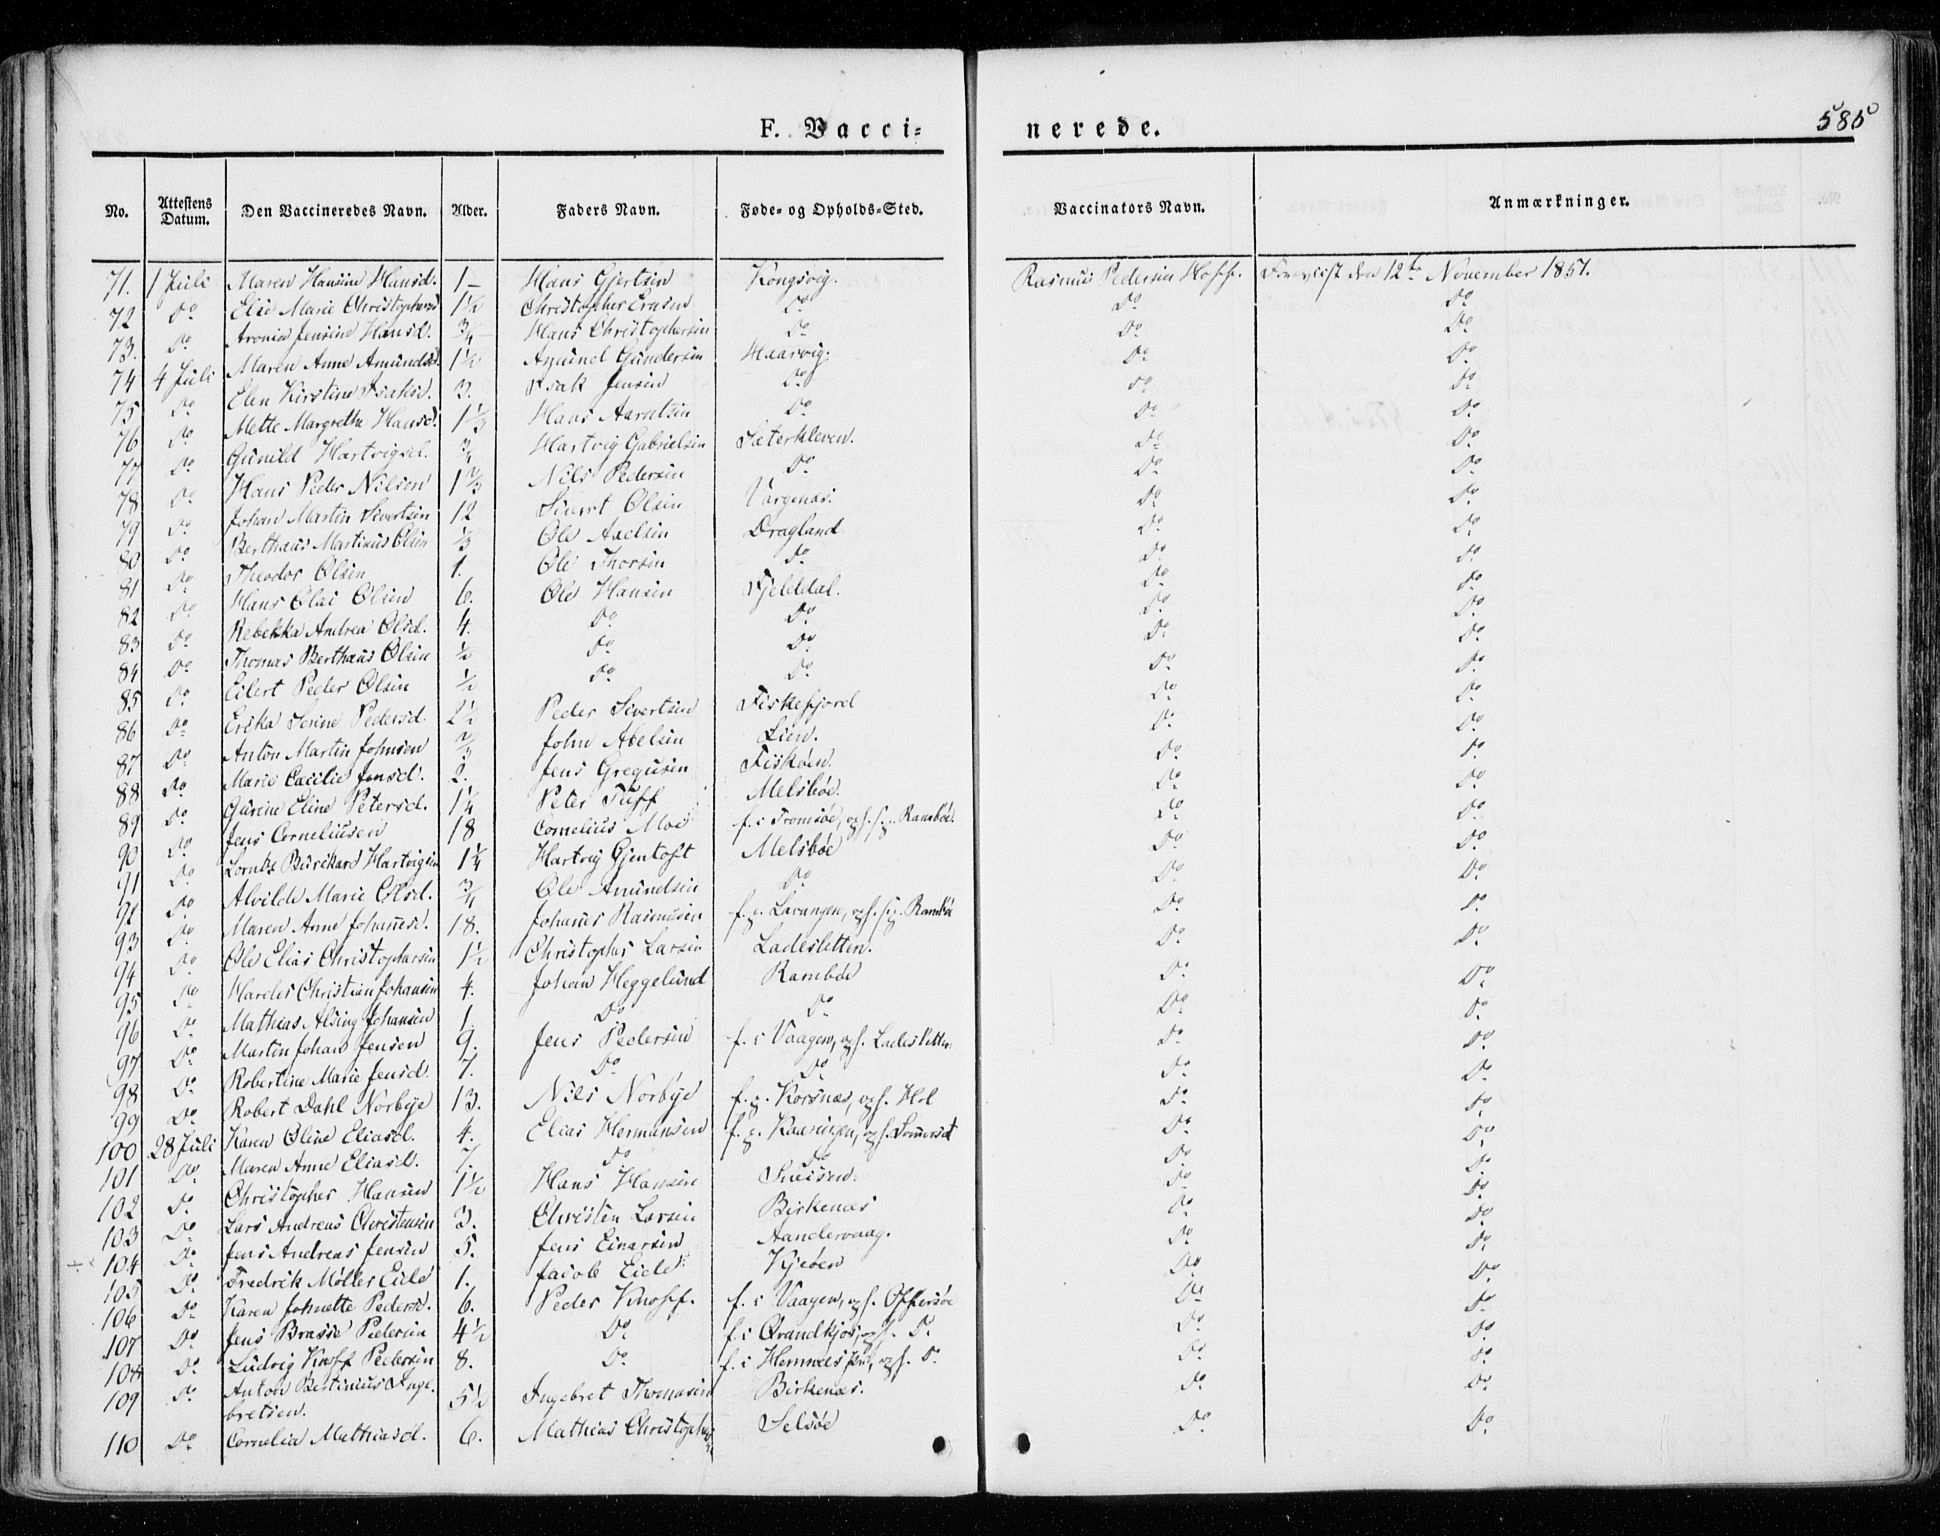 585
F. Vacci=
nerede.
No. Attestens Datum. Den Vaccineredes Navn. Alder. Faders Navn. Føde- og Opholds-Sted. Vaccinators Navn. Anmærkninger.
71. 1 Juli Maren Hansine Hansd. 1 – Hans Gjertsen Kongsvig. Rasmus Pedersen Hoff. Foreviist den 12te November 1851.
72 Do Elie Marie Christophersd 1½ Christopher Do Do Do
73. Do Aronia Jensine Hansd. ¾ Hans Christophersen Do Do Do
74 4 Juli Maren Anne Amundsd. 1½ Amund Gundersen Haarvig. Do Do
75 Do Elen Kirstine Isaksd. 3. Isak Jensen Do Do Do
76 Do Mette Margrethe Hansd. 1⅓ Hans Aarntsen Do Do Do
77 Do Gunild Hartvigsd. ¾ Hartvig Gabrielsen Sæterkleven. Do Do
78 Do Hans Peder Nilsen 1⅔ Nils Pedersen Do Do Do
79 Do Johan Martin Sivertsen 12 Sivert Olsen Vargenæs. Do Do
80 Do Berthaus Martinus Olsen ⅓ Ole Axelsen Dragland. Do Do
81 Do Theodor Olsen 1. Ole Thorsen Do Do Do
82 Do Hans Olai Olsen 6. Ole Hansen Fjelddal. Do Do
83 Do Rebekka Andrea Olsd. 4. Do Do Do Do
84 Do Thomas Berthaus Olsen ½ Do Do Do Do
85 Do Eilert Peder Olsen ½ Do Do Do Do
86 Do Erika Serine Pedersd. 2½ Peder Sivertsen Fiskefjord Do Do
87 Do Anton Martin Johnsen ⅔ John Abelsen Lien. Do Do
88 Do Marie Cæcilie Jensd. 2. Jens Gregusen Fiskøen. Do Do
89 Do Gurine Eline Petersd. 1¼ Peter Tuff Melsbøe. Do Do
90 Do Jens Corneliusen 18 Cornelius Moe f. i Tromsöe, oph. p. Ramsböe. Do Do
91 Do Lornts Burchard Hartvigsen 1¼ Hartvig Gjentoft Melsbøe Do Do
92 Do Alvilde Marie Olsd. ¾ Ole Amundsen Do Do Do
93 Do Maren Anne Johannesd. 18. Johannes Rasmusen f. p. Lavangen, oph. p. Ramsböe Do Do
94 Do Ole Elias Christophersen 1½ Christopher Larsen Ladesletten. Do Do
95 Do Harder Christian Johansen 4. Johan Heggelund Ramböe Do Do
96 Do Mathias Alsing Johansen 1 Do Do Do Do
97 Do Martin Johan Jensen 9. Jens Pedersen f. i Vaagen, oph. Ladesletten Do Do
98 Do Robertine Marie Jensd. 7. Do Do Do Do
99 Do Robert Dahl Norbye 13. Nils Norbye f. p. Korsnæs, oph. Hol Do Do
100 28 Juli Karen Oline Eliasd. 4. Elias Hermansen f. p. oph. Sommerset Do Do
101 Do Maren Anne Eliasd. 7. Do Do Do Do
102 Do Christopher Hansen 1½ Hans Hansen Do Do
103 Do Lars Andreas Christensen 3. Christen Larsen Birkenæs Do Do
104 Do Jens Andreas Jensen 5. Jens Einarsen Aandervaag. Do Do
105 Do Fredrik Møller Eide 1. Jacob Eide Kjeøen Do Do
106 Do Karen Johnette Pedersd. 6. Peder Knoff. f. i Vaagen, oph. Offersøe Do Do
107 Do Jens Brasse Pedersen 4½ Do f. i oph. Do Do Do
108 Do Ludvig Knoff Pedersen 8. Do f. i oph. Do Do Do
109 Do Anton Bertinius Inge-
bretsen. 5½ Ingebret Thomasen Birkenæs. Do Do
110 Do Cornelia Mathiasd. 6. Mathias Christophersen Selsøe Do Do